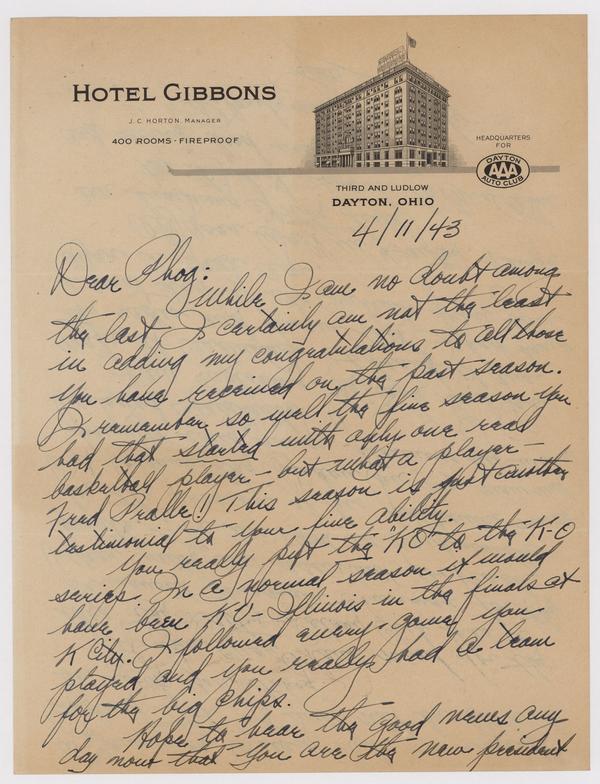 HOTEL GIBBONS
J. C. HORTON, MANAGER
400 ROOMS - FIREPROOF
HEADQUARTERS
FOR
DAYTON
AAA
AUTO CLUB
THIRD AND LUDLOW
DAYTON, OHIO
4/11/43
Dear Phog:
While I am no doubt among
the last I certainly am not the least
in adding my congratulations to all those
you have received on the past season.
I remember so well the fine season you
had that started with only one real
basketball player - but what a player -
Fred Pralle! This season is just another
testimonial to your fine ability.
You really put the "KO" to the K-O
series. In a normal season it would
have been KU-Illinois in the finals at
K City. I followed every game you
played and you really had a team
for the big chips.
Hope to hear the good news any
day now that you are the new president